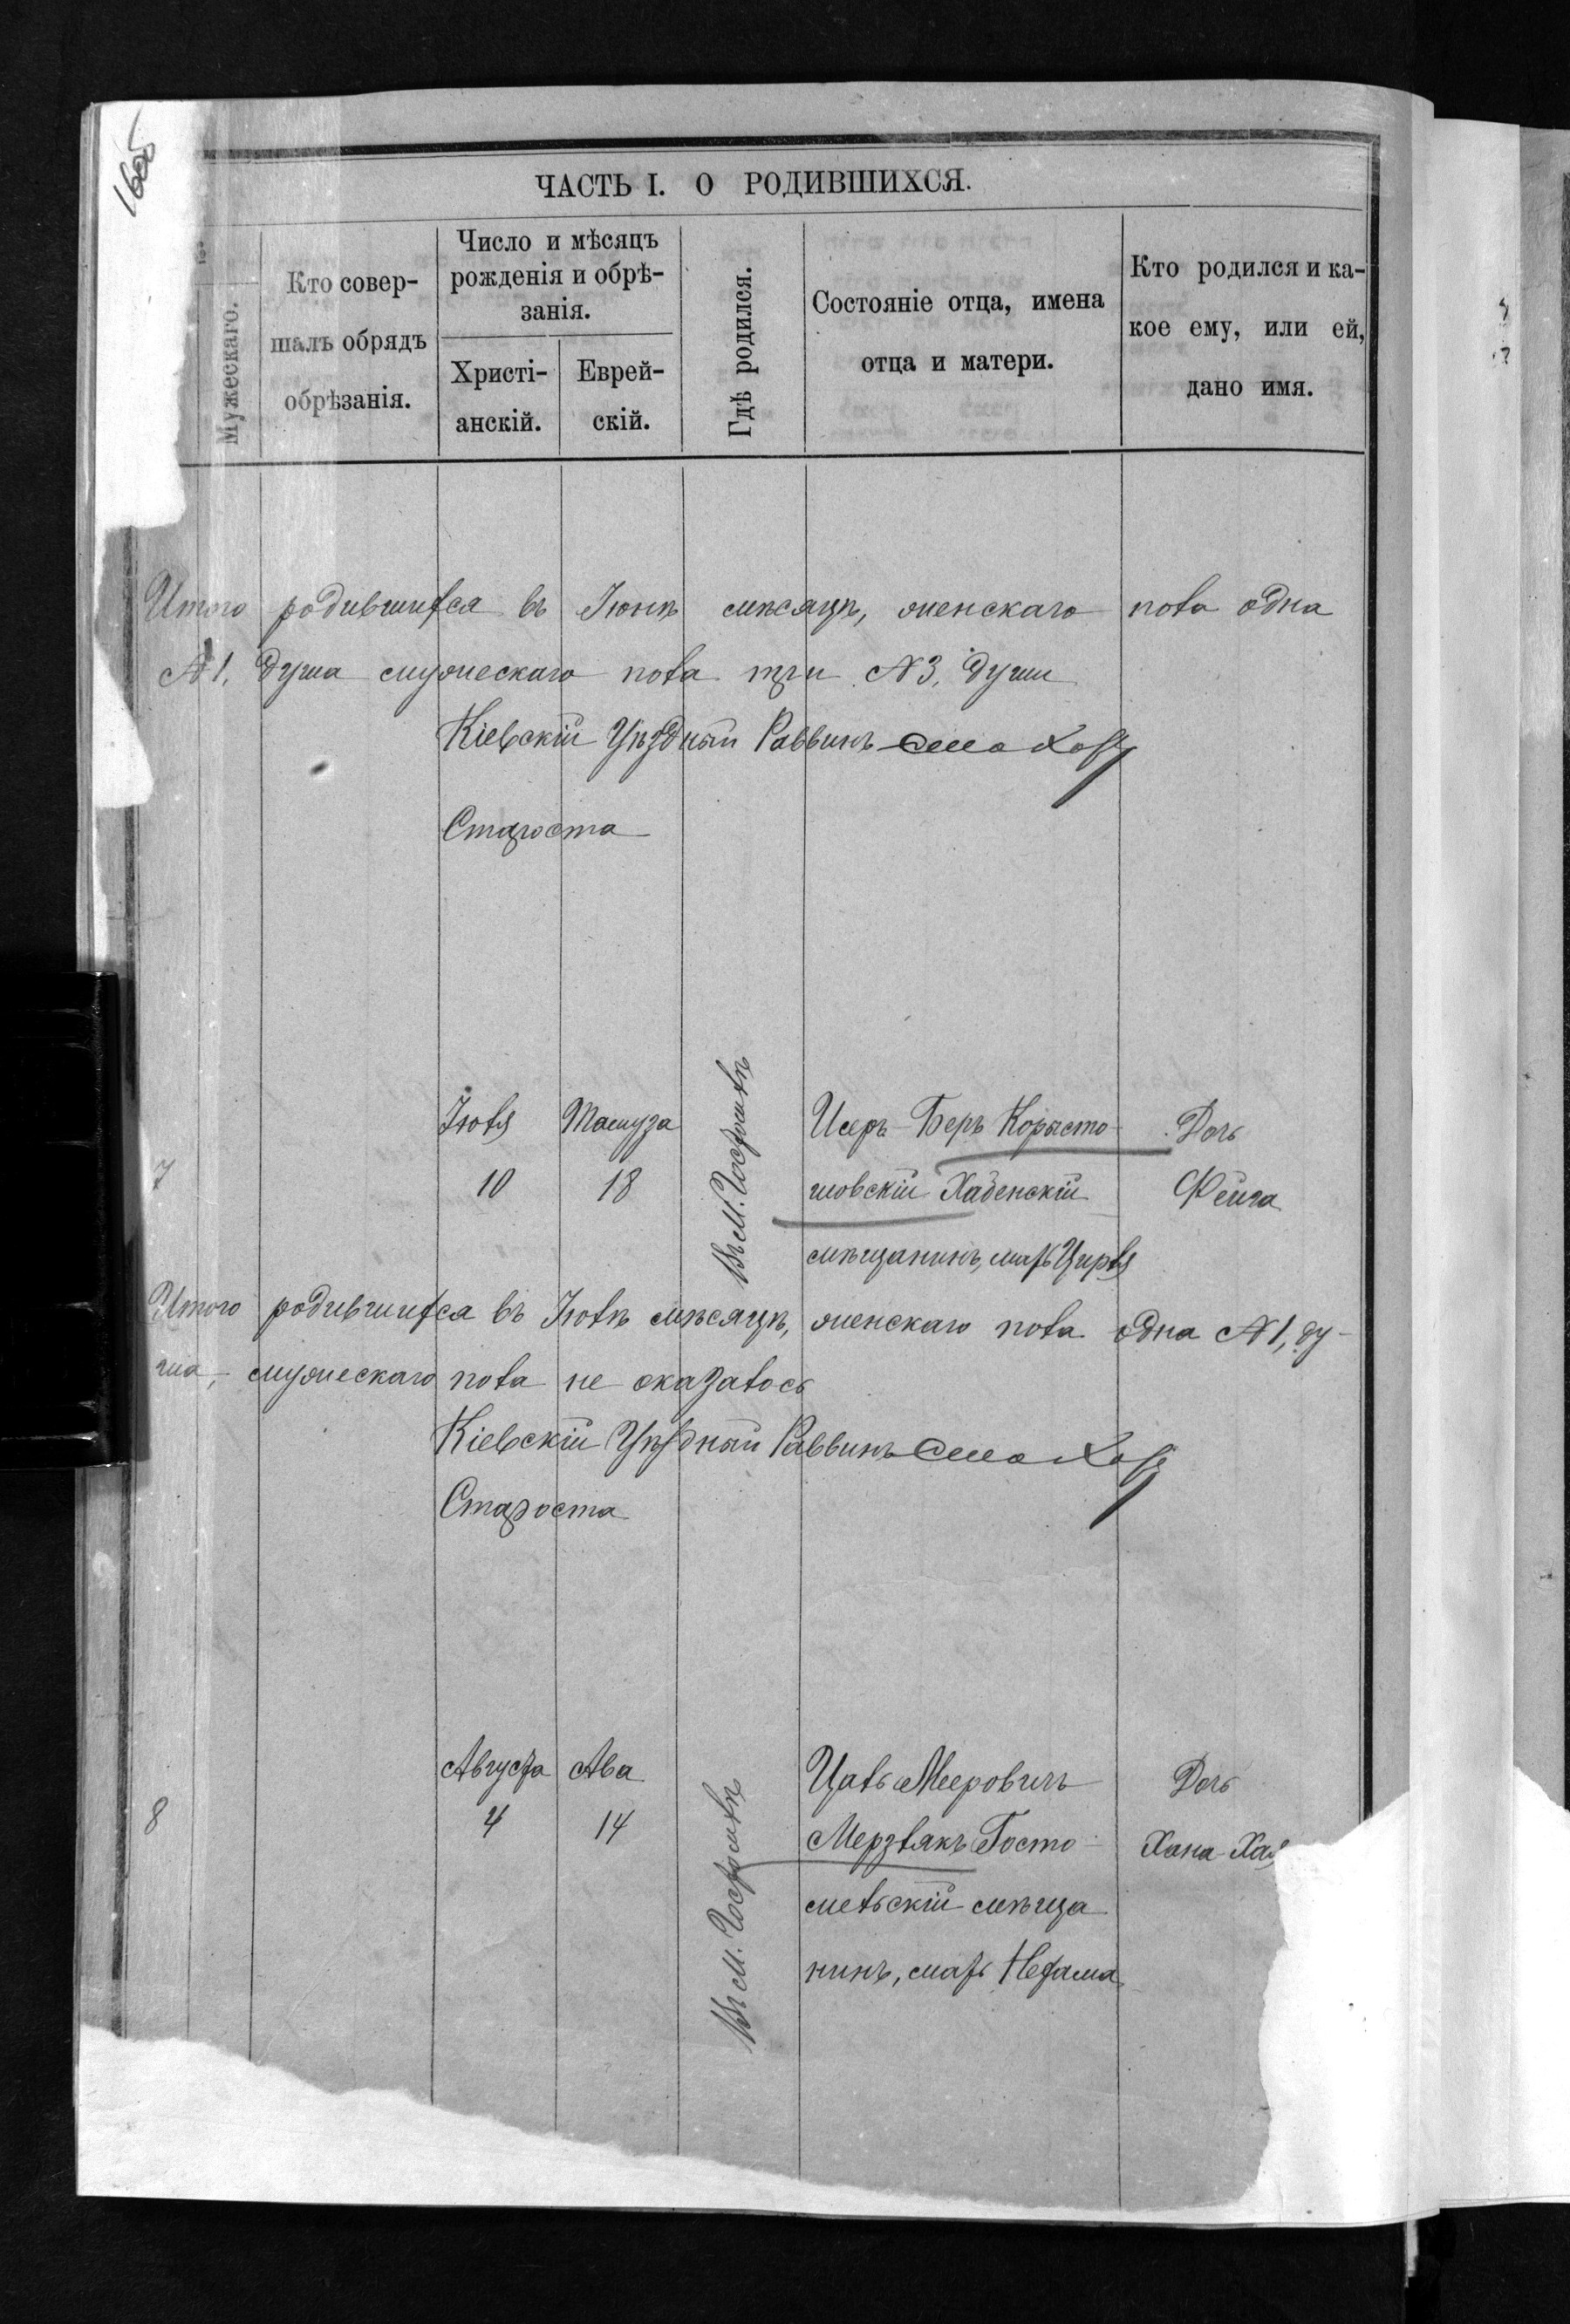 1605
ЧАСТЬ I. О РОДИВШИХСЯ.
Мужескаго.
Кто совер-
шалъ обрядъ
обрѣзанія.
Число и мѣсяцъ
рожденія и обрѣ-
занія.
Христі-
анскій.
Еврей-
скій.
Гдѣ родился.
Состояніе отца, имена
отца и матери.
Кто родился и ка-
кое ему, или ей,
дано имя.
Итого родившихся въ Іюнѣ мѣсяцѣ, женскаго пола одна
№ 1, душа мужескаго пола три № 3, души
Кіевскій Уѣздный Раввинъ
Староста
7
Іюля
10
Тамуза
18
Въ м. Гостомлѣ
Исеръ-Беръ Коросто-
шовскій Хабенскій
мѣщанинъ, мать Цирля
Дочь
Фейга
Итого родившихся въ Іюлѣ мѣсяцѣ, женскаго пола одна № 1, ду-
ша, - мужескаго пола не оказалось
Кіевскій Уѣздный Раввинъ
Староста
8
Августа
4
Ава
14
Въ м. Гостомлѣ
Цаль Мееровичъ
Мерзлякъ Госто-
мельскій мѣща
нинъ, мать Нехама
Дочь
Хана-Хая